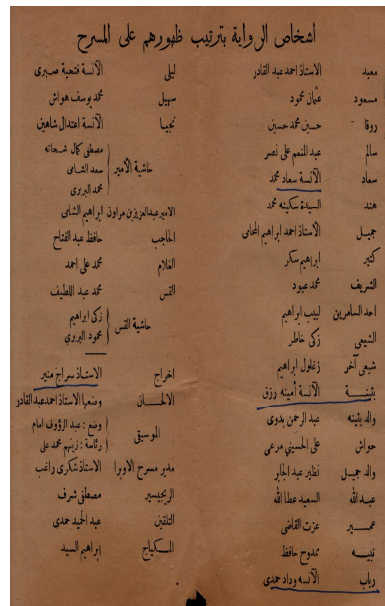 اشخاص الرواية بترتيب ظهورهم على المسرح
معبد الاستاذ احمد عبد القادر
مسعود عثمان محمود
روقا حسين محمد حسين
سالم عبد المنعم على نصر
سعاد الآنسة سعاد محمد
هند السيدة سكينه محمد
جميل الأستاذ احمد ابراهيم المحامى
كثير ابراهيم سكر
الشريف محمد عبود
احد السامرين لبيب ابراهيم
الشيعى زكى خاطر
شيعى آخر زغلول ابراهيم
بثينة الآنسة أمينه رزق
والد بثينه عبد الرحمن بدوى
حواش على الحسينى مرعى
والد جميل نظير عبد الجابر
عبد الله السعيد عطا الله
عمير عزت القاضى
نبيه ممدوح حافظ
رباب الآنسه وداد حمدى
ليلى الآنسة فتحية صبرى
سهيل محمد يوسف هواش
نجيبا الآنسة اعتدال شاهين
حاشية الأمير
مصطفى كمال شحاته
سعد الشامى
محمد البربرى
الامير عبد العزيز بن مروان ابراهيم الشامى
الحاجب حافظ عبد الفتاح
الغلام محمد على احمد
القس محمد عبد اللطيف
حاشية القس
زكى ابراهيم
محمود البربرى
اخراج الاستاذ سراج منير
الالحان وضعها الاستاذ احمد عبد القادر
الموسيقى
وضع : عبد الرؤوف امام
رئاسة : زينهم محمد على
مدير مسرح الاوبرا الاستاذ شكرى راغب
الريجيسير مصطفى شرف
التلقين عبد الحميد حمدى
المكياج ابراهيم السيد